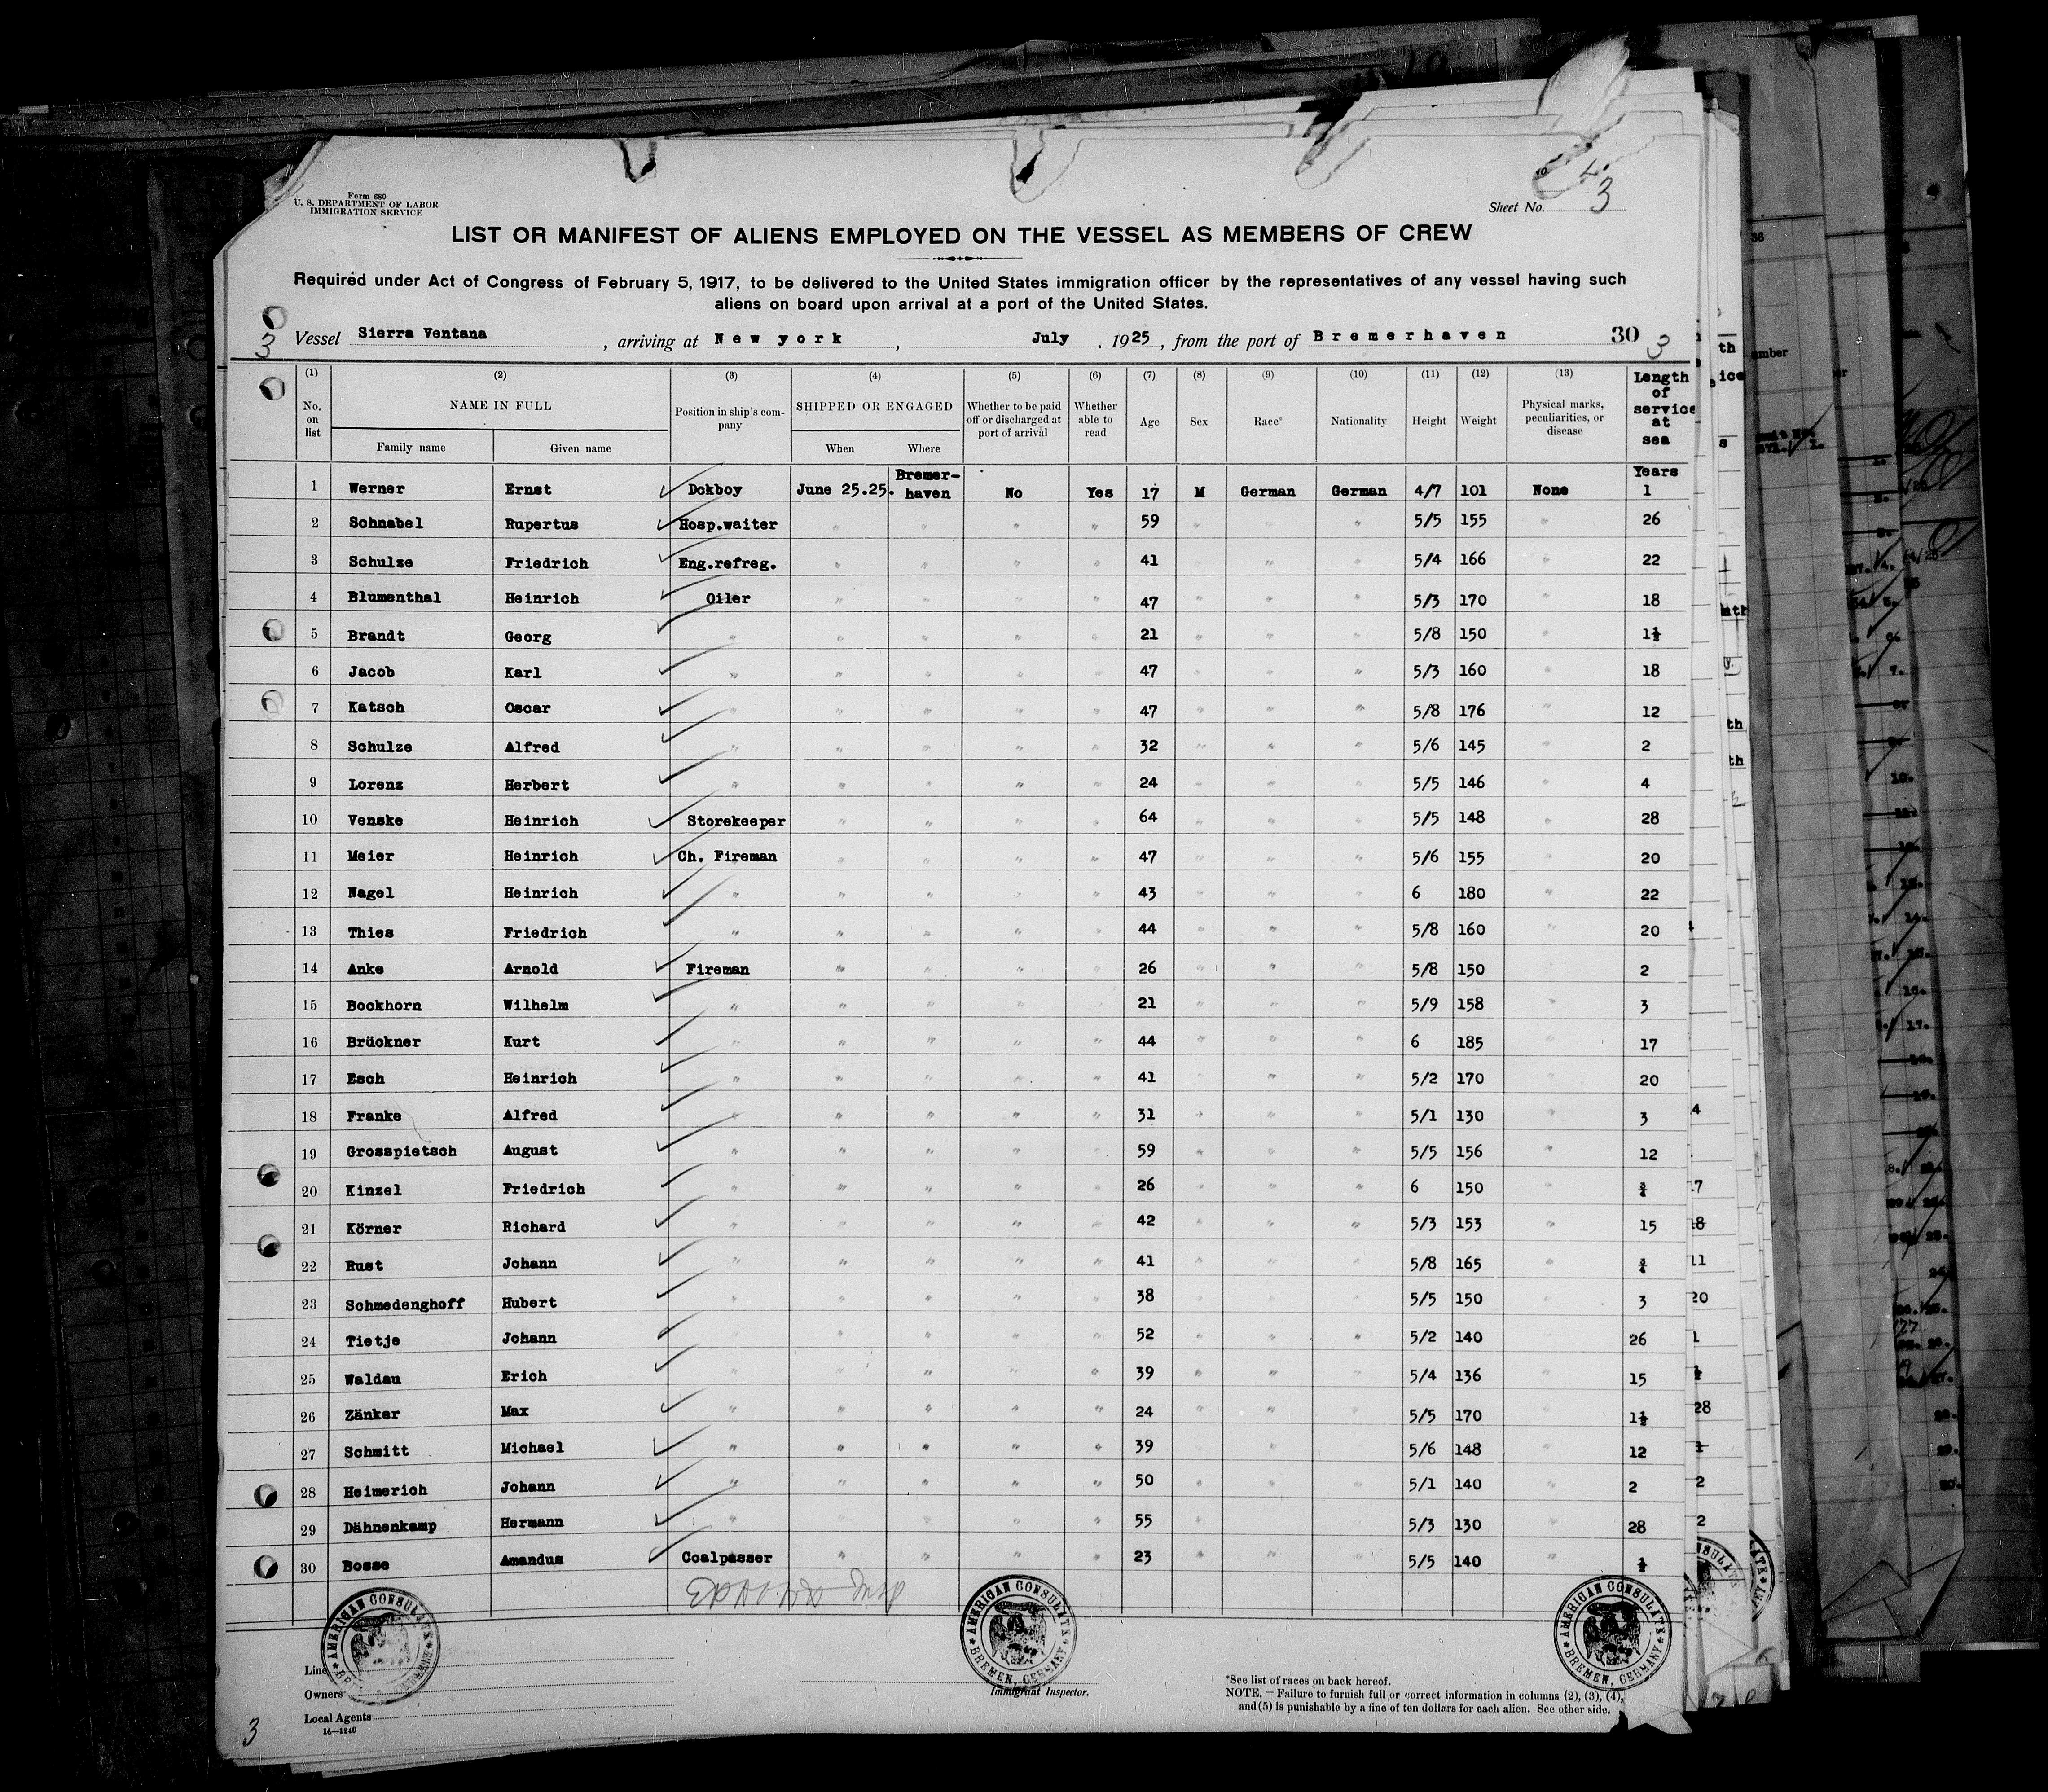 Form 680
U. S. DEPARTMENT OF LABOR
IMMIGRATION SERVICE
Sheet No. 3
LIST OR MANIFEST OF ALIENS EMPLOYED ON THE VESSEL AS MEMBERS OF CREW
Required under Act of Congress of February 5, 1917, to be delivered to the United States immigration officer by the representatives of any vessel having such
aliens on board upon arrival at a port of the United States.
3 Vessel Sierra Ventana, arriving at New york, July, 1925, from the port of Bremerhaven 30 3
(1) (2) (3) (4) (5) (6) (7) (8) (9) (10) (11) (12) (13)
No. on list NAME IN FULL Position in ship's company SHIPPED OR ENGAGED Whether to be paid off or discharged at port of arrival Whether able to read Age Sex Race* Nationality Height Weight Physical marks, peculiarities, or disease Length of service at sea
Family name Given name When Where
Years
1 Werner Ernst Dckboy June 25.25. Bremer-haven No Yes 17 M German German 4/7 101 None 1
2 Schnabel Rupertus Hosp.waiter " " " " 59 " " " 5/5 155 " 26
3 Schulze Friedrich Eng.refreg. " " " " 41 " " " 5/4 166 " 22
4 Blumenthal Heinrich Oiler " " " " 47 " " " 5/3 170 " 18
5 Brandt Georg " " " " " 21 " " " 5/8 150 " 1½
6 Jacob Karl " " " " " 47 " " " 5/3 160 " 18
7 Katsch Oscar " " " " " 47 " " " 5/8 176 " 12
8 Schulze Alfred " " " " " 32 " " " 5/6 145 " 2
9 Lorenz Herbert " " " " " 24 " " " 5/5 146 " 4
10 Venske Heinrich Storekeeper " " " " 64 " " " 5/5 148 " 28
11 Meier Heinrich Ch. Fireman " " " " 47 " " " 5/6 155 " 20
12 Nagel Heinrich " " " " " 43 " " " 6 180 " 22
13 Thies Friedrich " " " " " 44 " " " 5/8 160 " 20
14 Anke Arnold Fireman " " " " 26 " " " 5/8 150 " 2
15 Bockhorn Wilhelm " " " " " 21 " " " 5/9 158 " 3
16 Brückner Kurt " " " " " 44 " " " 6 185 " 17
17 Esch Heinrich " " " " " 41 " " " 5/2 170 " 20
18 Franke Alfred " " " " " 31 " " " 5/1 130 " 3
19 Grosspietsch August " " " " " 59 " " " 5/5 156 " 12
20 Kinzel Friedrich " " " " " 26 " " " 6 150 " ¾
21 Körner Richard " " " " " 42 " " " 5/3 153 " 15
22 Rust Johann " " " " " 41 " " " 5/8 165 " ¾
23 Schmedenghoff Hubert " " " " " 38 " " " 5/5 150 " 3
24 Tietje Johann " " " " " 52 " " " 5/2 140 " 26
25 Waldau Erich " " " " " 39 " " " 5/4 136 " 15
26 Zänker Max " " " " " 24 " " " 5/5 170 " 1½
27 Schmitt Michael " " " " " 39 " " " 5/6 148 " 12
28 Heimerich Johann " " " " " 50 " " " 5/1 140 " 2
29 Dähnenkamp Hermann " " " " " 55 " " " 5/3 130 " 28
30 Bosse Amandus Coalpasser " " " " 23 " " " 5/5 140 " ½
AMERICAN CONSULATE
AMERICAN CONSULATE BREMEN, GERMANY
AMERICAN CONSULATE BREMEN, GERMANY
Line
Owners
Local Agents
14—1240
Immigrant Inspector.
*See list of races on back hereof.
NOTE.—Failure to furnish full or correct information in columns (2), (3), (4),
and (5) is punishable by a fine of ten dollars for each alien. See other side.
3